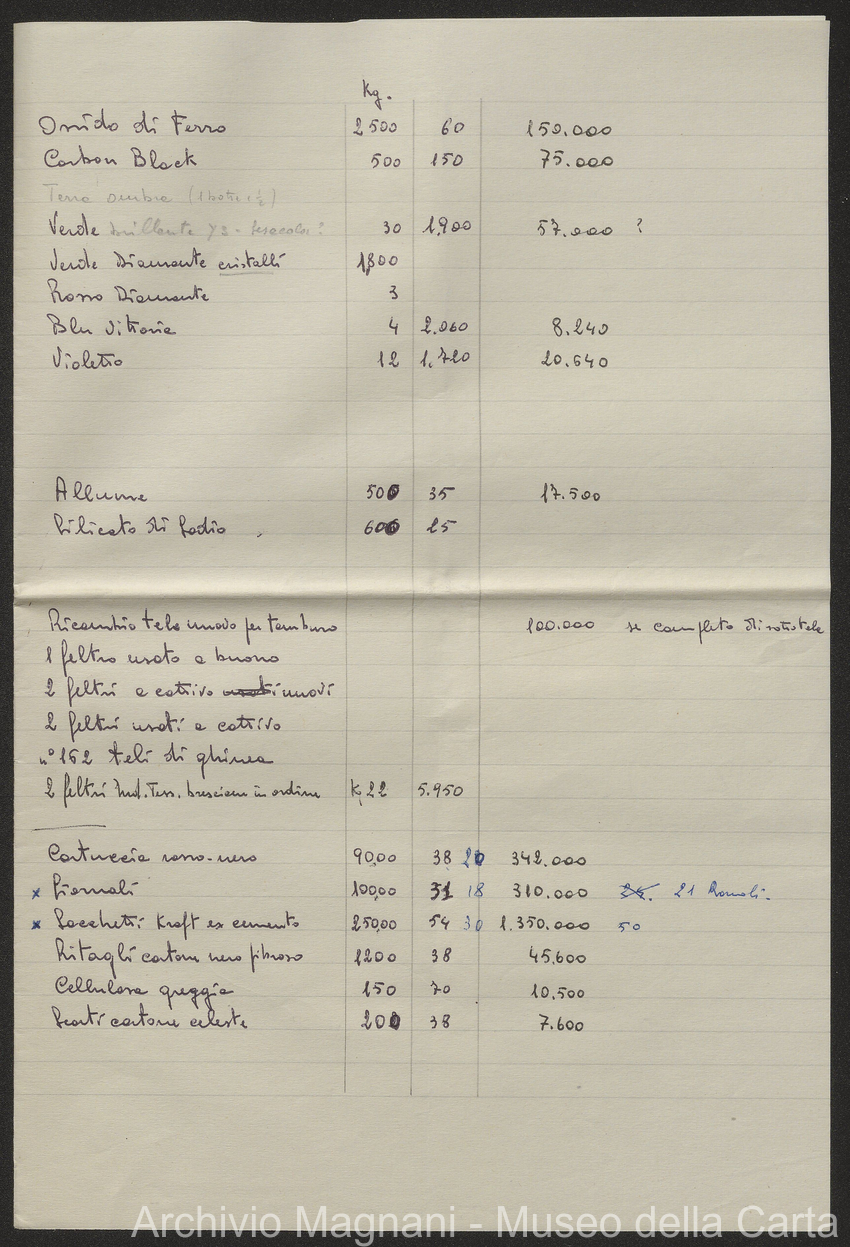 Kg.
Ossido di Ferro 2500 60 150.000
Carbon Black 500 150 75.000
Terra ombra (1 botte ½)
Verde brillante 30 1.900 57.000 ?
Verde Diamante cristalli 1,800
Rosso Diamante 3
Blu Vittoria 4 2.060 8.240
Violetto 12 1.720 20.640
Allume 500 35 17.500
Silicato di Sodio 600 25
Ricambio tela nuovo per tamburo 100.000 se completo di sottotela
1 feltro usato a buono
2 feltri a cattivo usati nuovi
2 feltri usati a cattivo
n° 162 teli di ghinea
2 feltri Ind. Tess. bresciana in ordine K, 22 5.950
Cartuccia rosso-nero 90,00 38 20 342.000
x Giornali 100,00 31 18 310.000 21 Romoli.
x Sacchetti Kraft ex cemento 250,00 54 30 1.350.000 50
Ritagli cartone nero fibroso 1200 38 45.600
Cellulosa greggia 150 70 10.500
Scarti cartone celeste 200 38 7.600
Archivio Magnani - Museo della Carta